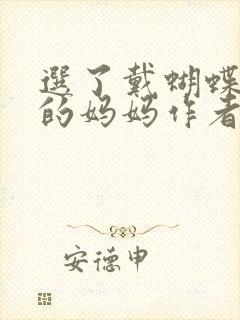 選了戴蝴蝶
的妈妈作者
安德申